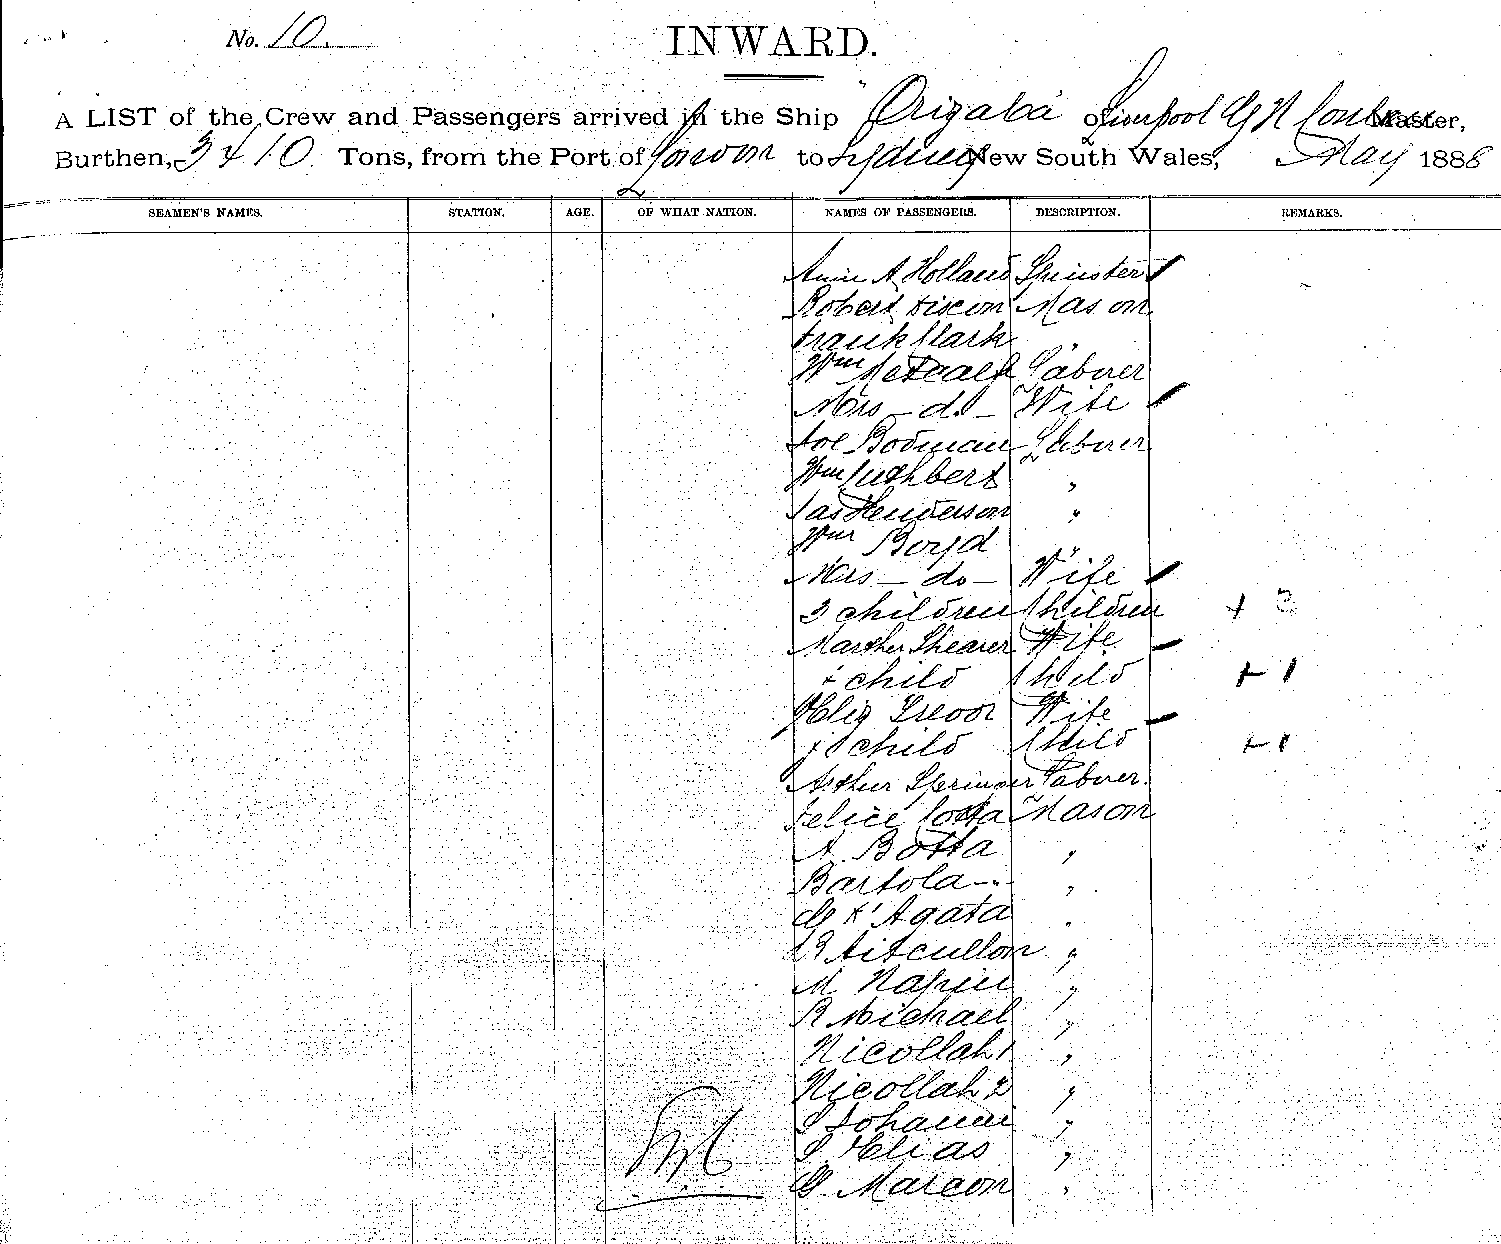 No. 10.
INWARD.
A LIST of the Crew and Passengers arrived in the Ship "Orizaba of Liverpool G N Master,
Burthen, 3410 Tons, from the Port of London to Sydney New South Wales, May 1886
SEAMEN'S NAMES. STATION. AGE. OF WHAT NATION. NAMES OF PASSENGERS. DESCRIPTION. REMARKS.
Annie A Holland Spinster
Robert Mason
Frank Clark "
Wm Metcalf Laborer
Mrs - do - Wife
Joe Bodman Laborer
Wm Cuthbert "
Jas Henderson "
Wm Boyd "
Mrs - do - Wife
3 children Children + 3
Marther Shearer Wife
+ child Child + 1
Eliz Trevor Wife
+ child Child + 1
Arthur Springer Laborer.
Felice Cotta Mason
A. Botta "
Bartola "
de D'Agata "
"
M Napier "
R Michael "
Nicollah 1 "
Nicollah 2 "
S Johanni "
S. Elias "
G. Marcon "